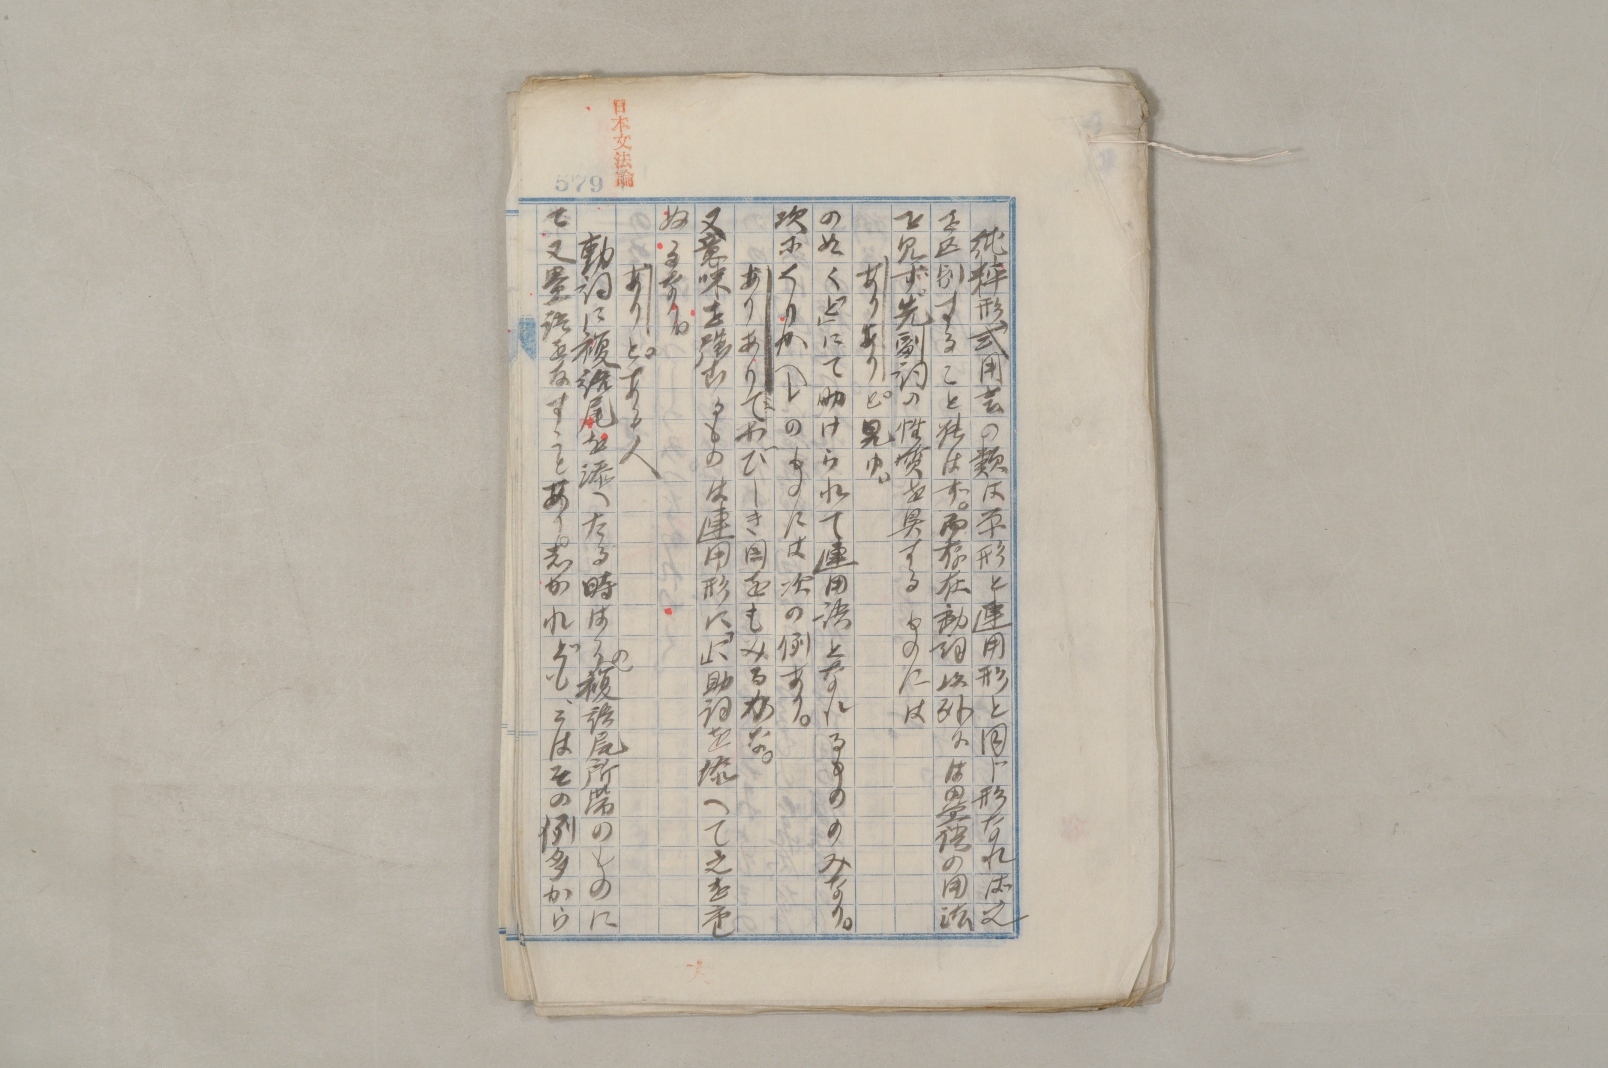 日本文法論
579
純粋形式用言の類は原形と連用形と同じ形なれば之
を区別すること能はず。而存在動詞以外には畳語の用法
を見ず。先副詞の性質を具するものには
ありありと見ゆ。
の如く「と」にて助けられて連用語となれるもののみなり。
次にくりかへしのものには次の例あり。
ありありてわびしき目をもみるかな。
又意味を強むるものは連用形に「に」助詞を添へて之を重
ぬるなり。
ありとある人
動詞に複語尾を添へたる時はその複語尾所帯のものに
て又畳語をなすことあり。志かれども、こはその例多から